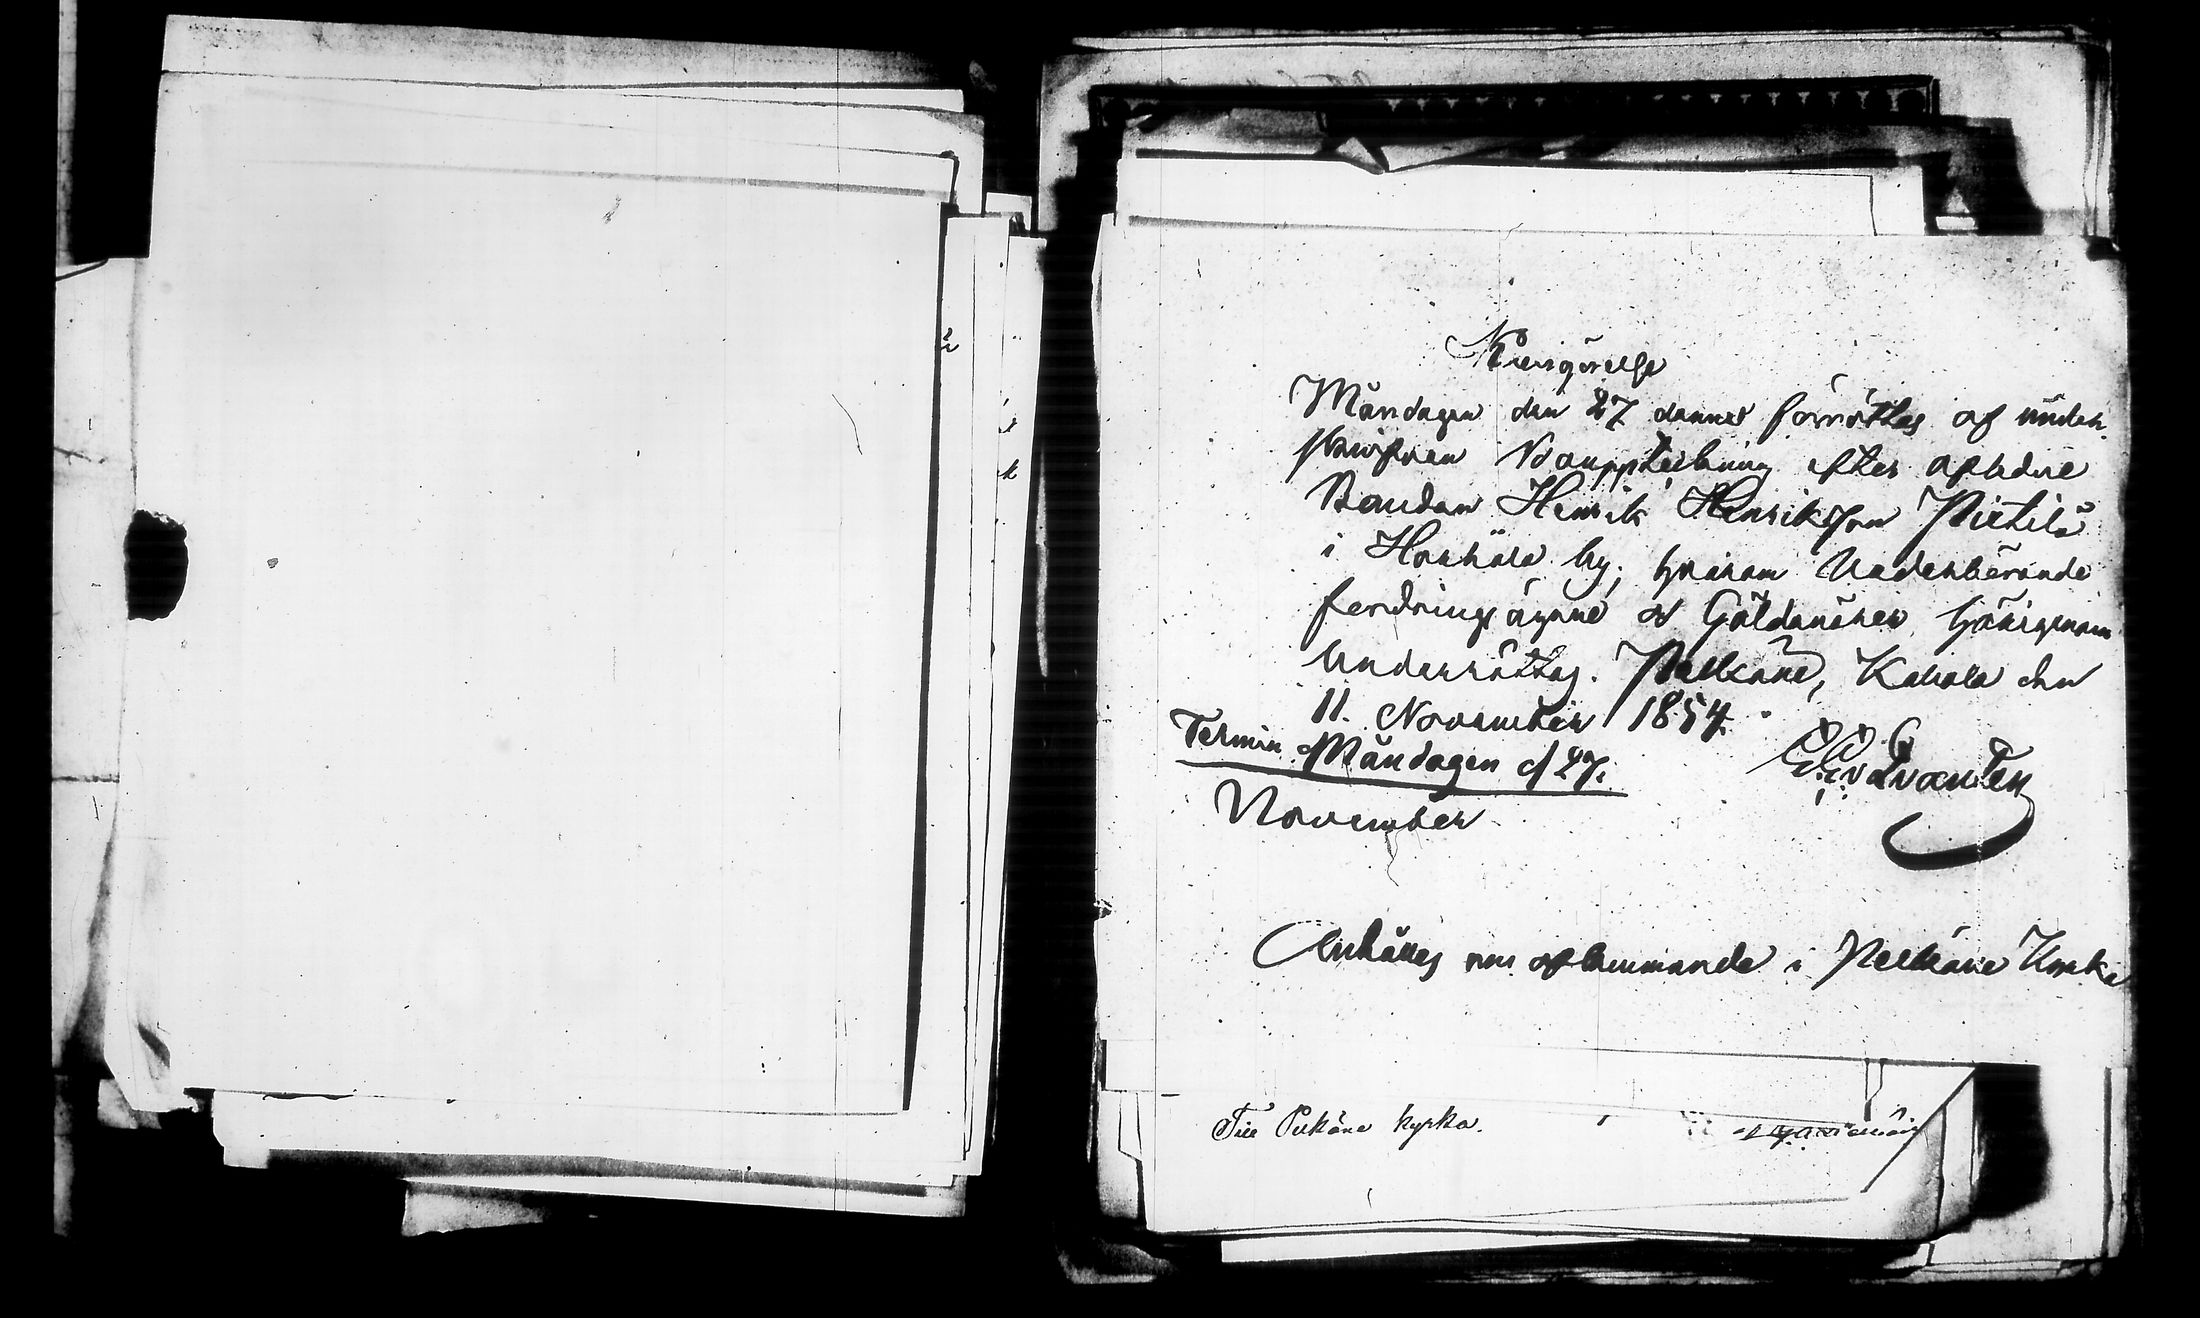 Kungörelse
Måndagen den 27 dennes förrättas af under-
skrifven Bouppteckning efter aflidne
Bonden Henrik Henriksson Pietilä
i Harhala by, hvarom Vederbörande
fordringsägare och Gäldenärer härigenom
underrättas. Pelkäne, Kakola den
11. November 1854.
Termin Måndagen d/27.
November
Anhålles om afkunnande i Pelkäne Kyrka
Till Pelkäne kyrka.